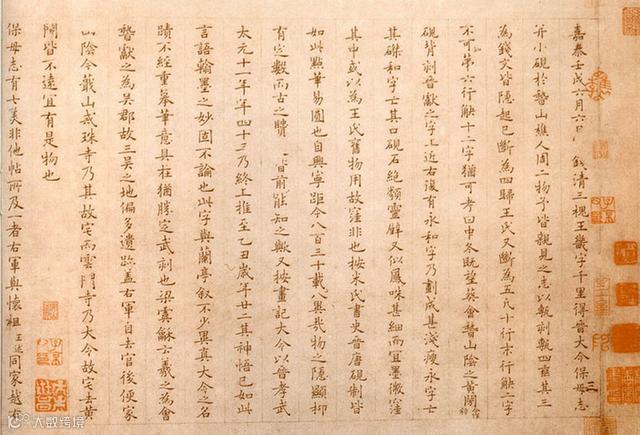 嘉泰壬戌六月六日錢清三槐王畿字千里得晉大令保母志
并小硯於稽山樵人周二物予皆親見之志以甎刻甎四垂其三
為錢文皆隱起已斷為四歸王氏又斷為五凡十行末行缺二字
不可知第六行缺十二字猶可考曰中冬既望葬會稽山陰之黃閍
硯背刻晉獻之字上近右復有永和字乃劃成甚淺瘦永字亡
其磔和字亡其口硯石絕類靈壁又似鳳咮甚細而宜墨微窪
其中或以為王氏舊物用故窪非也按米氏書史晉唐硯制皆
如此點筆易圓也自興寧距今八百三十載八與幾物之隱顯抑
有定數而古之賢皆前能知之歟又按畫記大令以晉孝武
太元十一年年四十三乃終上推至乙丑歲年廿二其神悟已如此
言語翰墨之妙固不論也此字與蘭亭敘不少異真大令之名
蹟不經重摹筆意具在猶勝定武刻也梁虞龢云羲之為會
稽獻之為吳郡故三吳之地偏多遺跡蓋右軍自去官後便家
山陰今蕺山戒珠寺乃其故宅而雲門寺乃大令故宅去黃
閍皆不遠宜有是物也
保母志有七美非他帖所及一者右軍與懷祖王述同家越
大数跨境